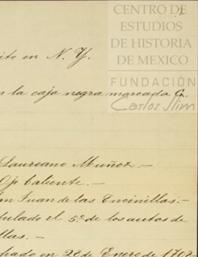 CENTRO DE
ESTUDIOS
DE HISTORIA
DE MEXICO
FUNDACIÓN
Carlos Slim
ito en N. Y.
la caja negra marcada
Laureano Muñoz. —
Ojo Caliente. —
Juan de las Encinillas. —
bulado el 5º de los autos de
llas. —
hado en 22 de Enero de 1702